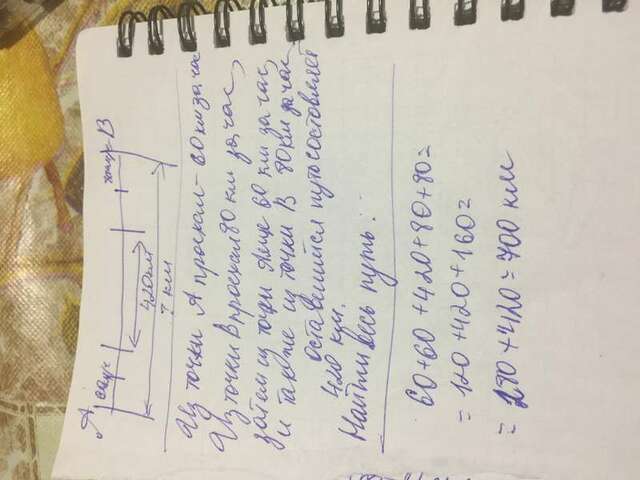 A B
420 км
? км
Из точки А проехал - 60 км за час
Из точки В проехал 80 км за час,
Затем из точки А еще 60 км за час,
и также из точки В 80 км за час,
оставшийся путь составляет
420 км.
Найти весь путь.
60+60+420+80+80=
=120+420+160=
=280+420=700 км